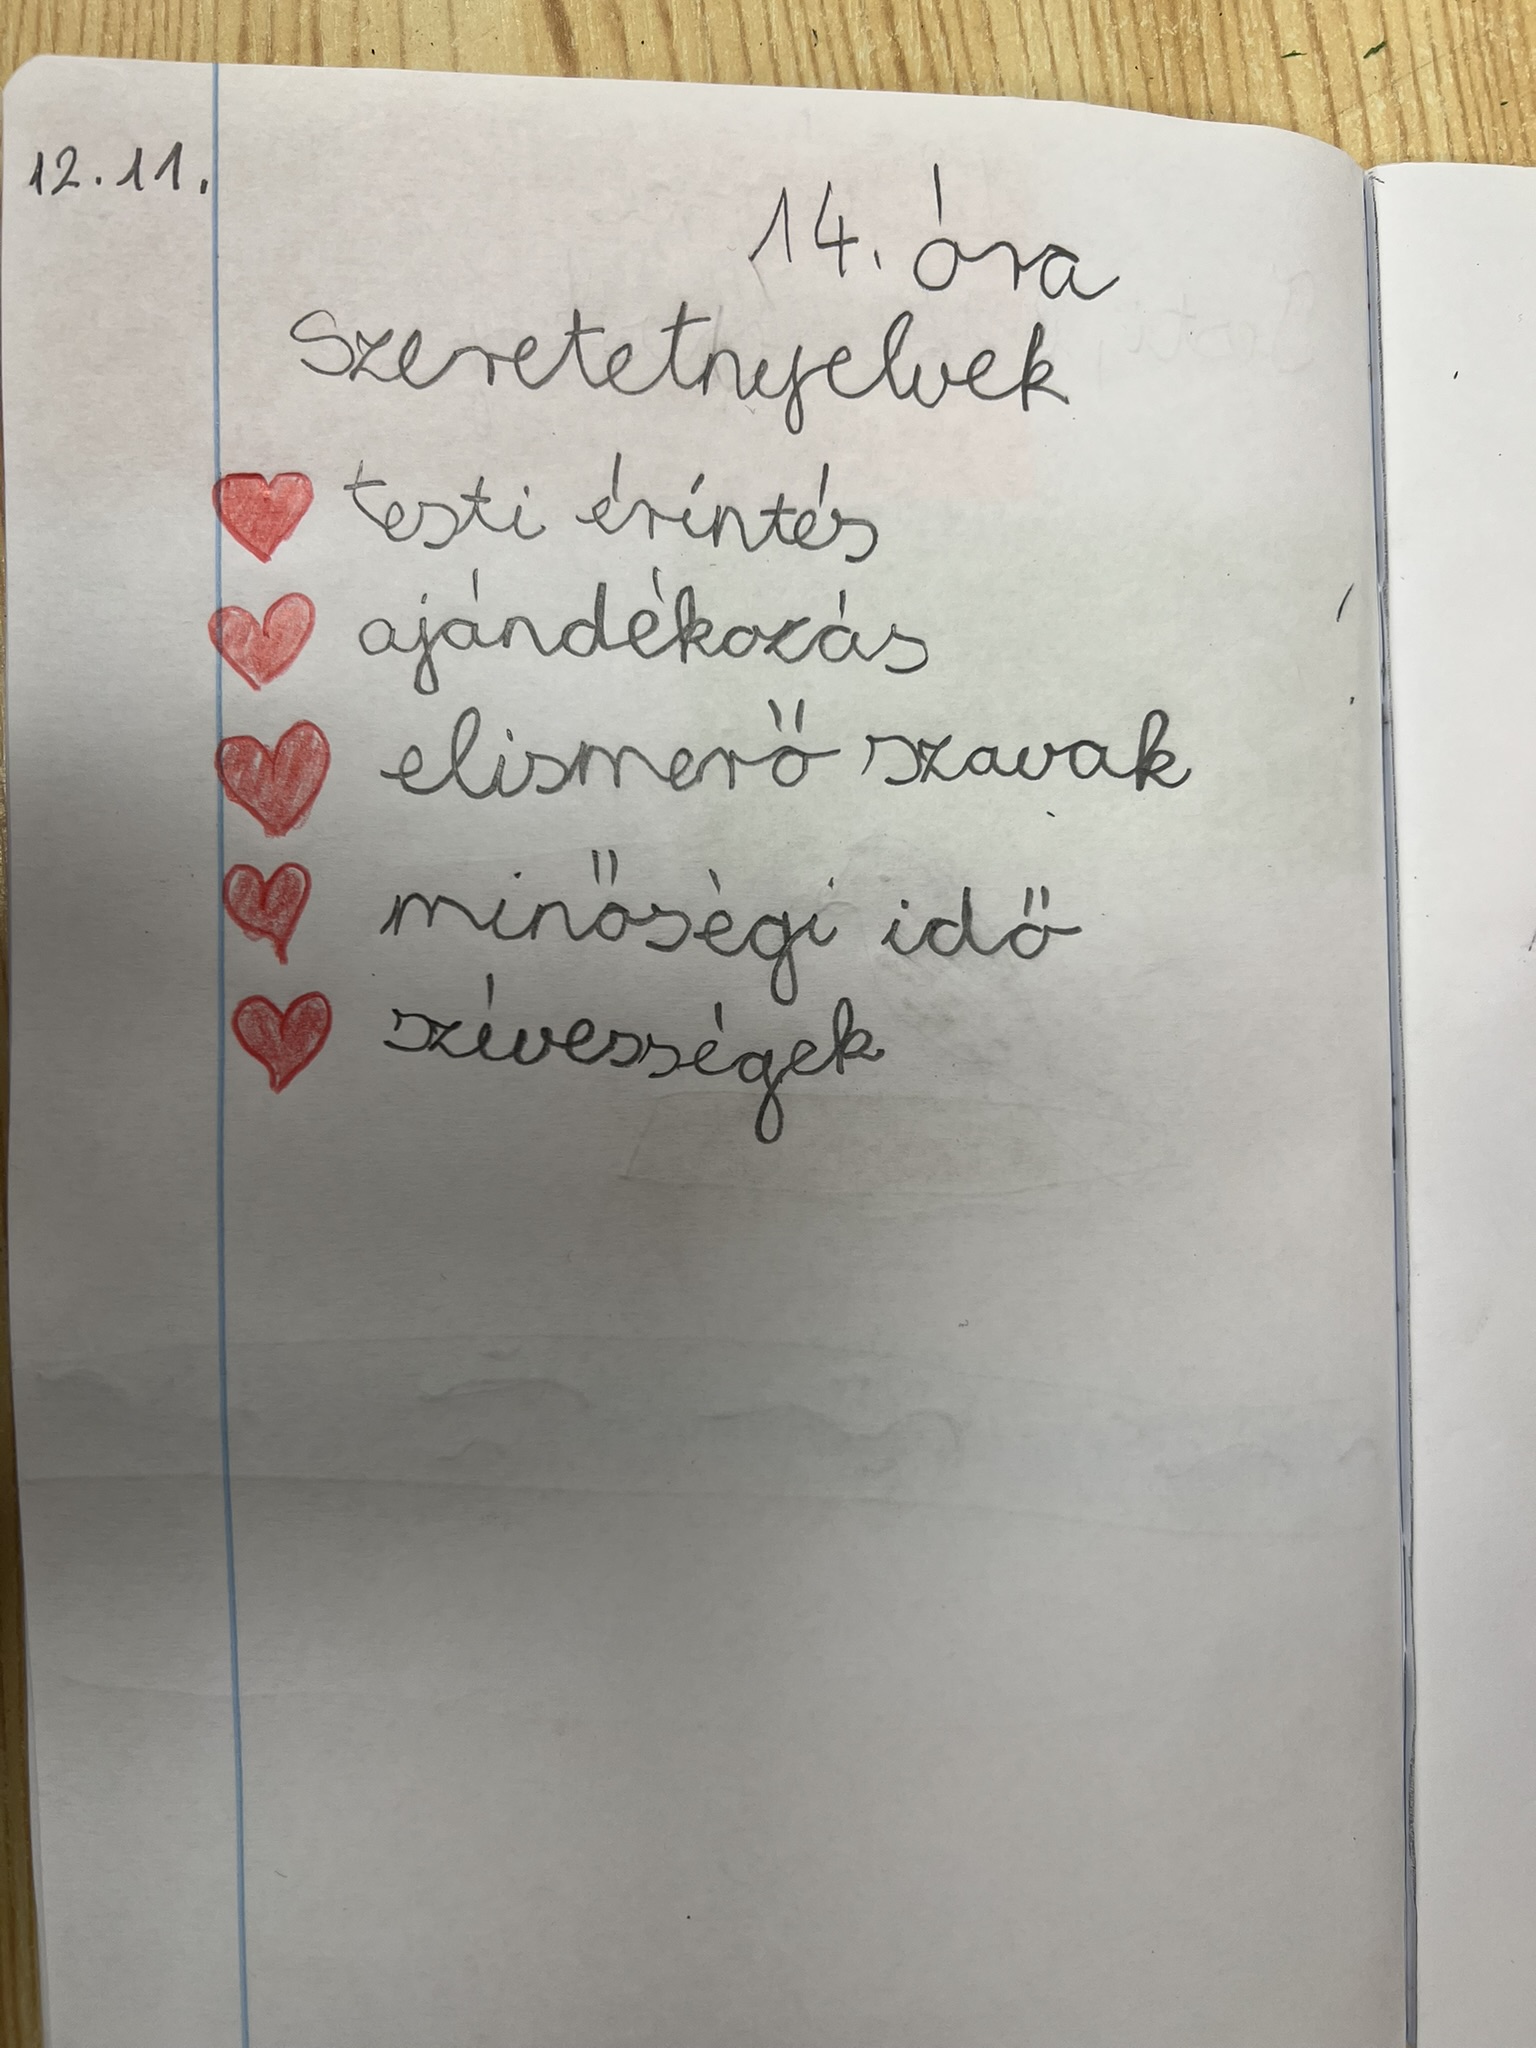 12.11.
14. óra
Szeretetnyelvek
testi érintés
ajándékozás
elismerő szavak
minőségi idő
szívességek